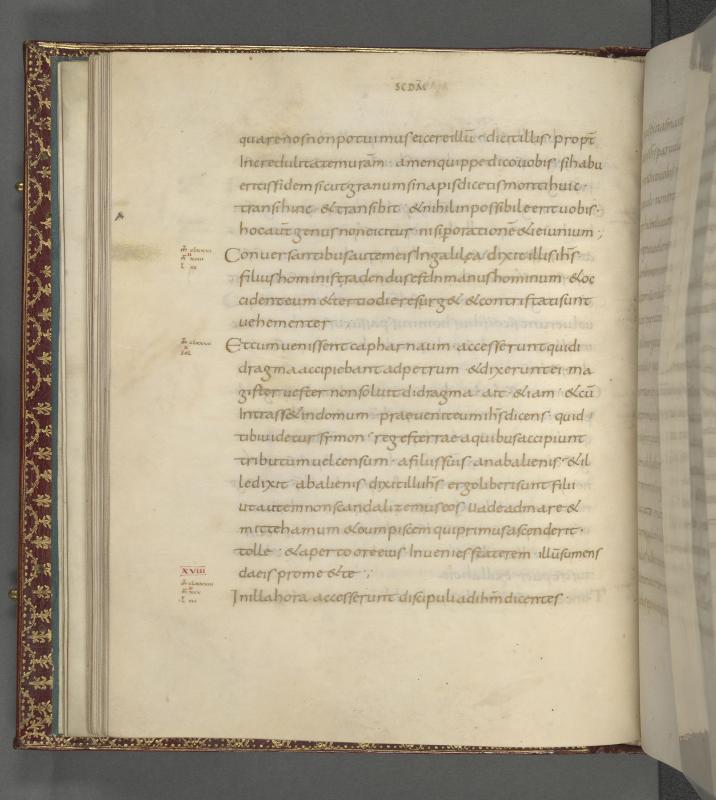 SCDM
quare nos non potuimus eicere illū dicit illis propt
Incredulitatem uram amen quippe dico uobis si habu
eritis fidem sicut granum sinapis dicetis monti huic
transi hinc & transibit & nihil inpossibile erit uobis
hoc aut genus non eicitur nisi p orationē & ieiunium
Conuersantibus autem eis In galilęa dixit illis ihs
filius hominis tradendus est In manus hominum & oc
cident eum & tertio die resurg& & contristati sunt
uehementer
Et cum uenissent capharnaum accesserunt qui di
dragma accipiebant ad petrum & dixerunt ei ma
gister uester non soluit didragma ait &iam & cū
Intrass& in domum praeuenit eum ihs dicens quid
tibi uidetur simon reges terrae a quibus accipiunt
tributum uel censum a filiis suis an ab alienis & il
le dixit ab alienis dixit illi ihs ergo liberi sunt filii
ut autem non scandalizemus eos uade ad mare &
mitte hamum & eum piscem qui primus ascenderit
tolle & aperto ore eius Inuenies staterem illū sumens
da eis pro me & te
XVIII
In illa hora accesserunt discipuli ad ihm dicentes